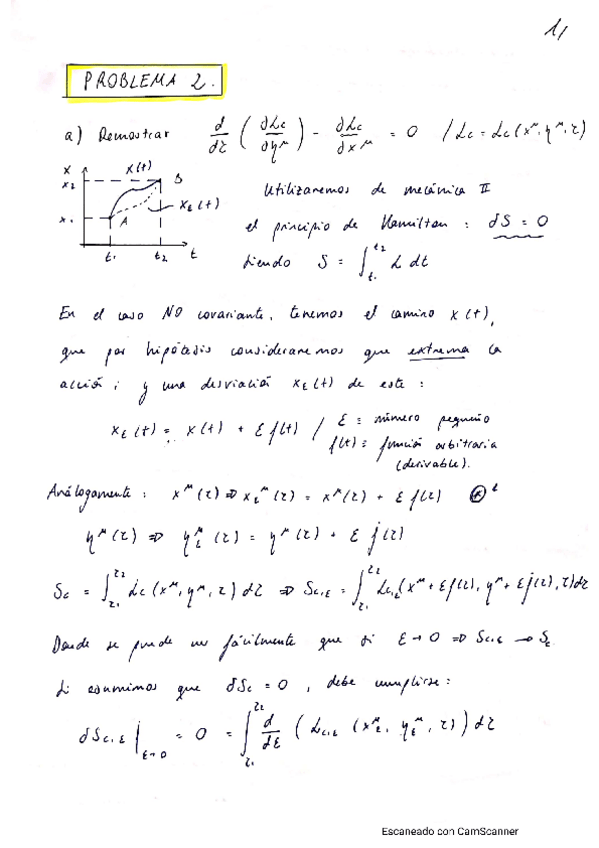 1,
PROBLEMA 2.
a) Demostrar d/dτ ( ∂Lc/∂ημ ) - ∂Lc/∂xμ = 0 / Lc = Lc(xμ, ημ, τ)
x x(t)
x₂ B
xε(t)
x₁ A
t₁ t₂ t
Utilizaremos de mecánica II
el principio de Hamilton : δS = 0
siendo S = ∫_{t₁}^{t₂} L dt
En el caso NO covariante, tenemos el camino x(t),
que por hipótesis consideraremos que extrema la
acción ; y una desviación xε(t) de este :
xε(t) = x(t) + ε f(t) / ε ≡ número pequeño
f(t) ≡ función arbitraria
(derivable).
Análogamente : xμ(τ) ⇒ xεμ(τ) = xμ(τ) + ε f(τ)
ημ(τ) ⇒ ηεμ(τ) = ημ(τ) + ε j(τ)
Sc = ∫_{τ₁}^{τ₂} Lc(xμ, ημ, τ) dτ ⇒ Sc,ε = ∫_{τ₁}^{τ₂} Lc,ε(xμ + εf(τ), ημ + εj(τ), τ)dτ
Donde se puede ver fácilmente que si ε → 0 ⇒ Sc,ε → Sc
Si asumimos que δSc = 0 , debe cumplirse :
δSc,ε |_{ε→0} = 0 = ∫_{τ₁}^{τ₂} d/dε ( Lc,ε (xεμ, ηεμ, τ) ) dτ
Escaneado con CamScanner